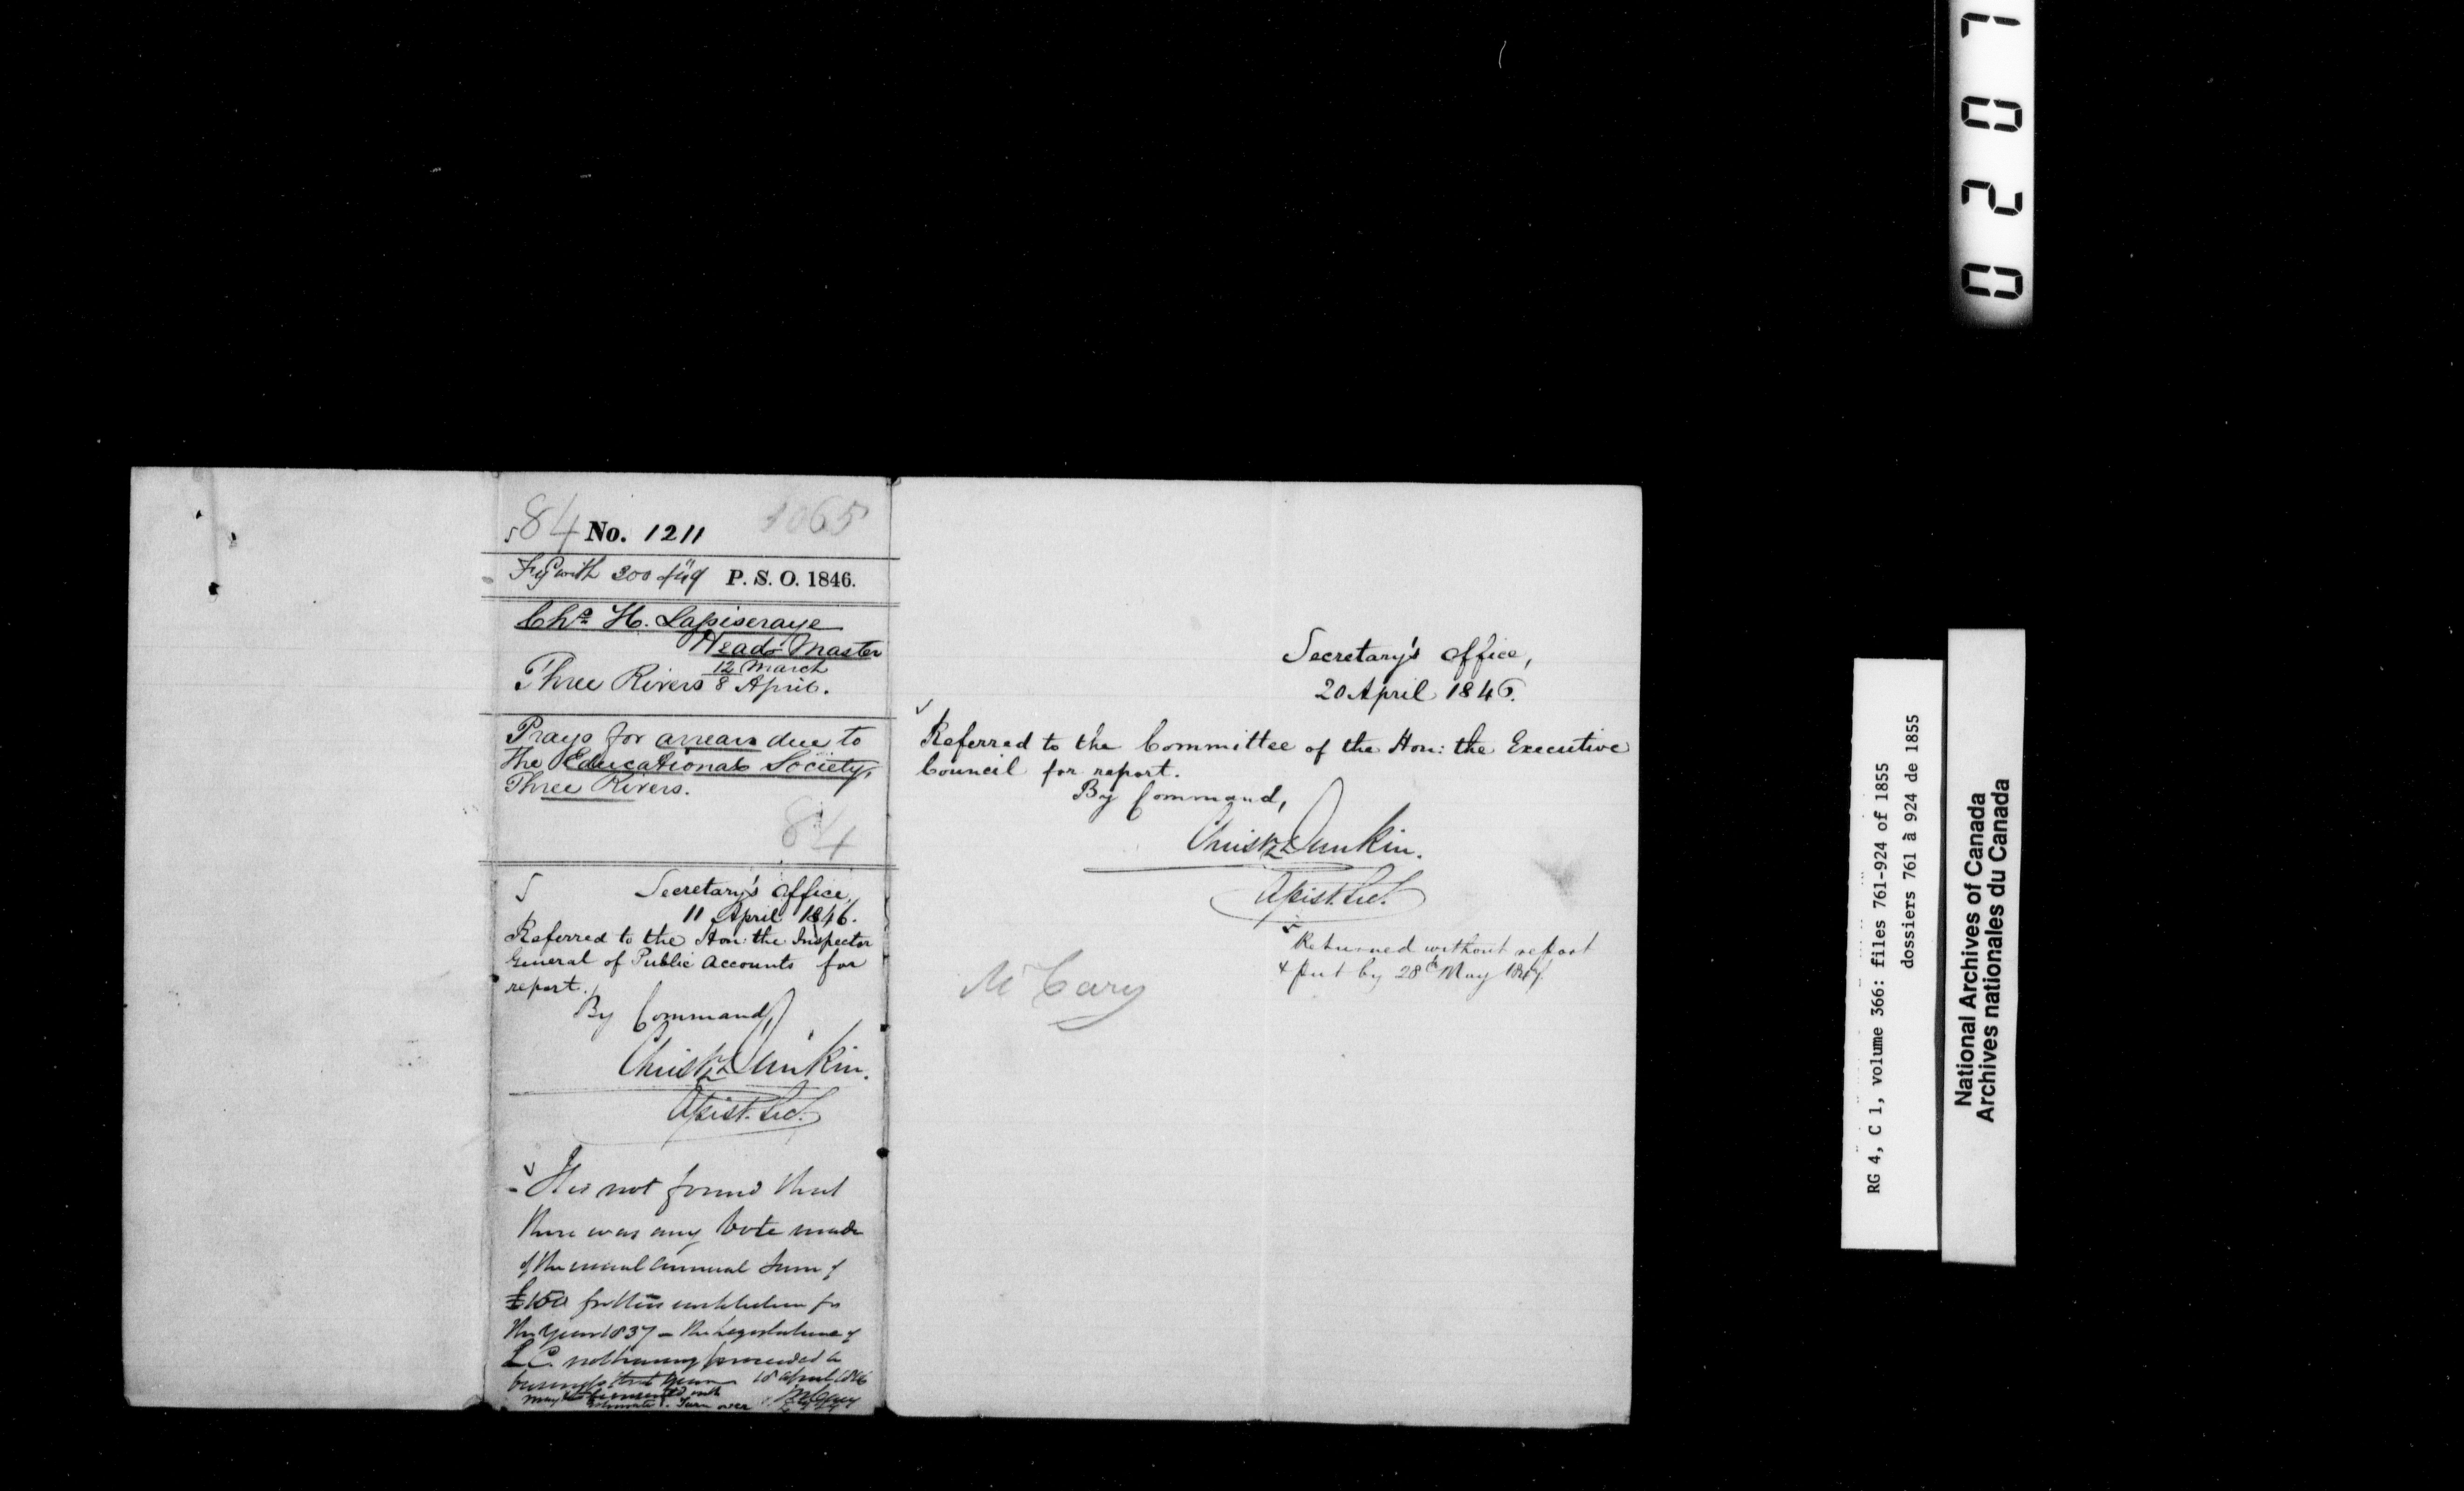 84 No. 1211 1065
Fyd with 300 of 49 P. S. O. 1846.
Chs. H. Lapiseraye
Head Master
12 March
Three Rivers 8 April.
Prays for arrears due to
the Educational Society,
Three Rivers.
84
Secretary's Office,
11 April 1846.
Referred to the Hon: the Inspector
General of Public Accounts for
report.
By Command,
Christr. Dunkin.
Assist. Sec.
It is not found that
there was any Vote made
of the usual annual Sum of
£150 for this institution for
the year 1837 - the Legislature of
L.C. not having proceeded to
business that year 18 April 1846
may be
Estimate. Turn over
Secretary's Office,
20 April 1846.
Referred to the Committee of the Hon: the Executive
Council for report.
By Command,
Christr. Dunkin.
Assist. Sec.
Returned without report
& put by 28th May 1847.
McCary
0207
RG 4, C 1, volume 366: files 761-924 of 1855
dossiers 761 à 924 de 1855
National Archives of Canada
Archives nationales du Canada